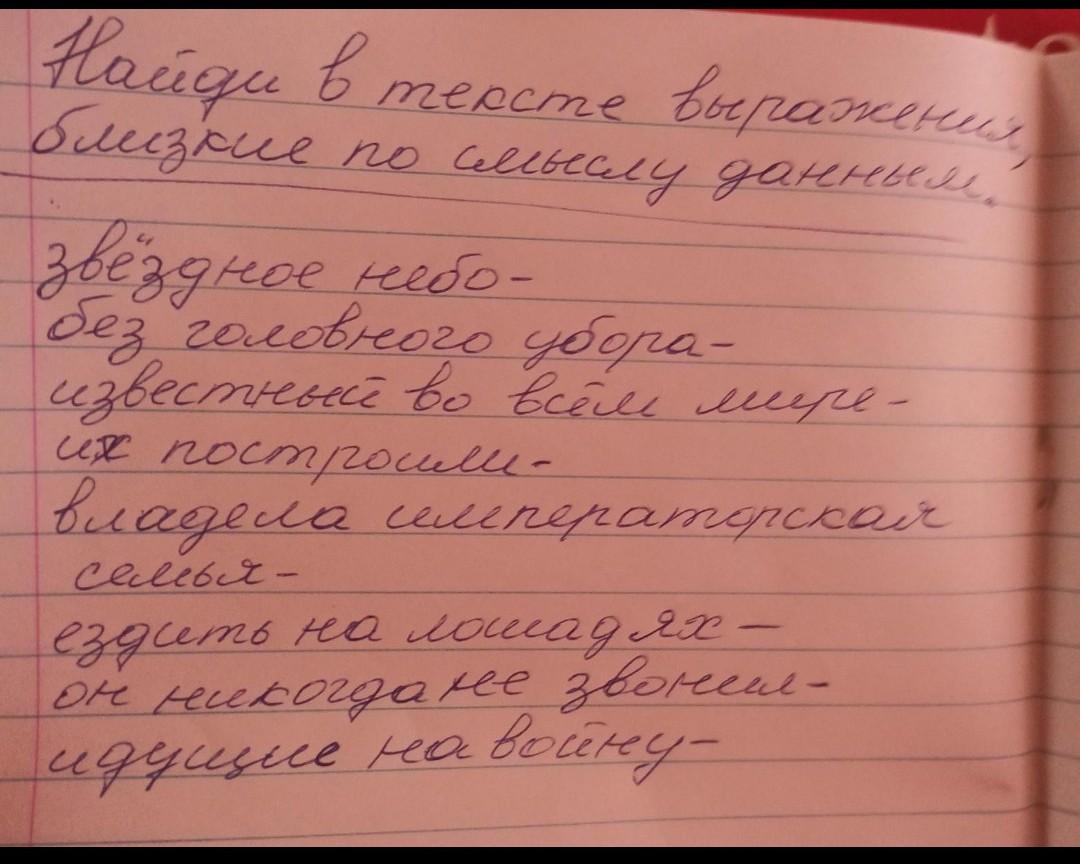 Найди в тексте выражения,
близкие по смыслу данным.
звёздное небо-
без головного убора-
известный во всём мире-
их построили-
владела императорская
семья-
ездить на лошадях-
он никогда не звонил-
идущие на войну-